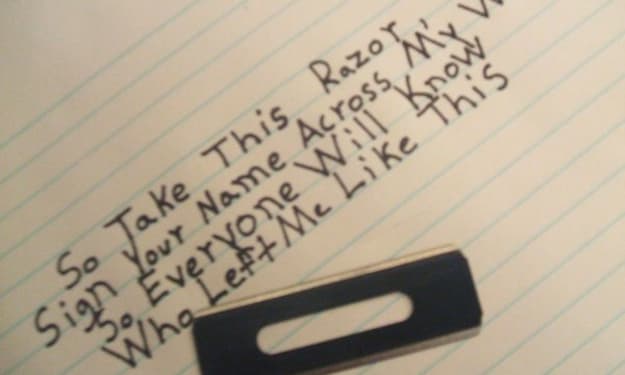 So Take This Razor,
Sign Your Name Across My
So Everyone Will Know
Who Left Me Like This